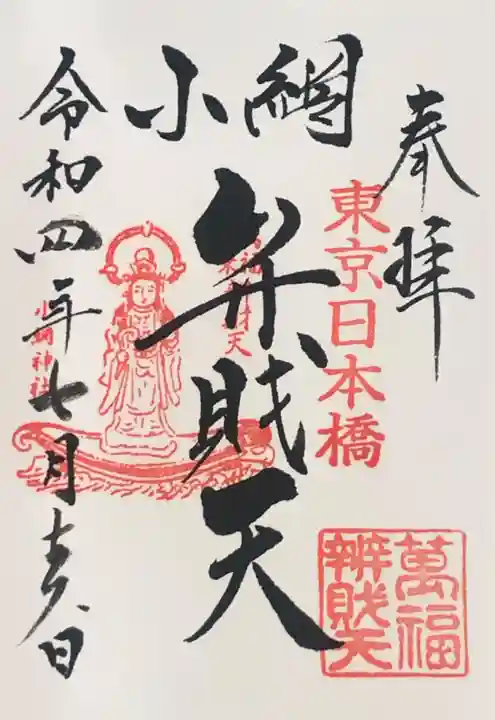 奉拝
東京日本橋
小網
弁財天
萬福
辨財天
小網神社
令和四年七月十六日